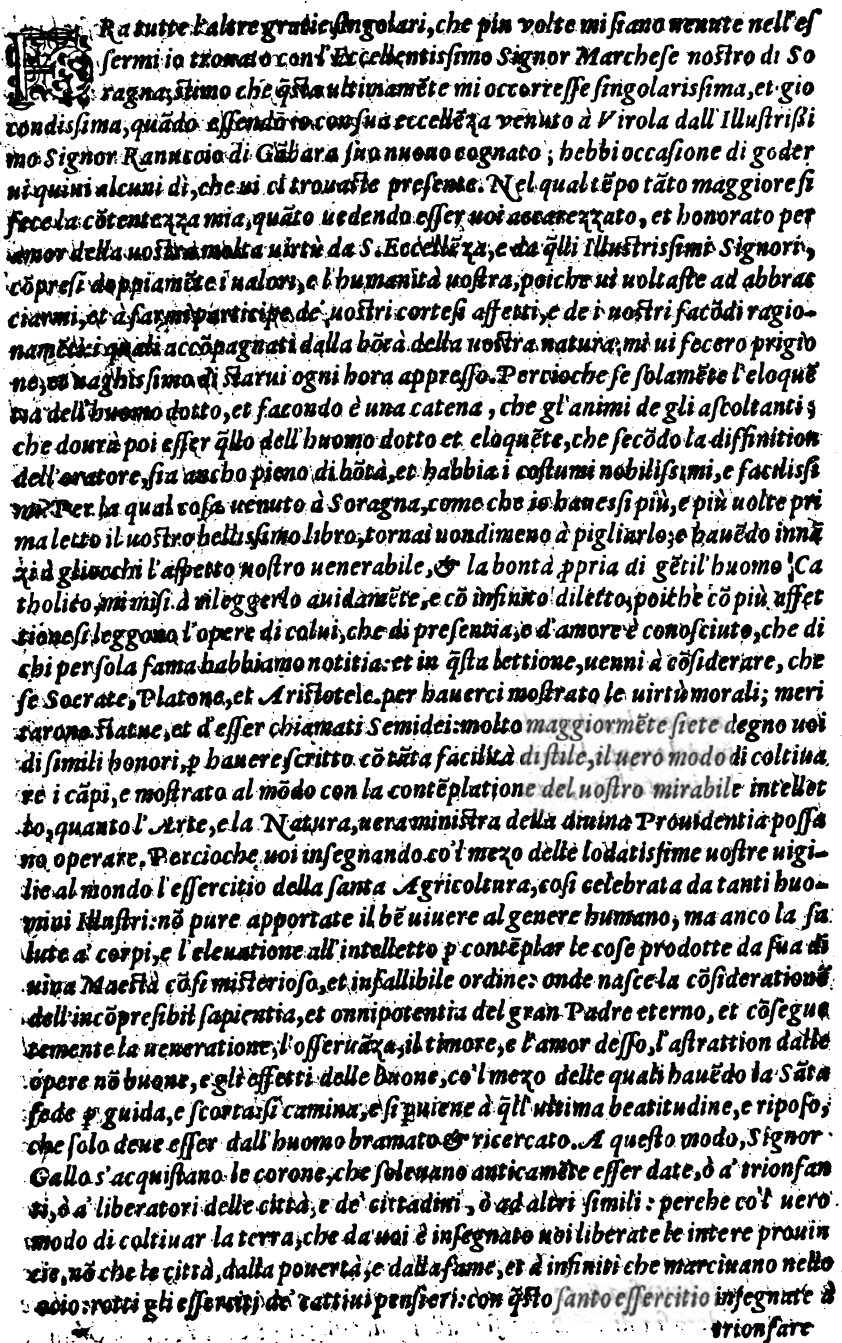 FRa tutte l'altre gratie singolari, che piu volte mi siano uenute nell'es
sermi io trouato con l'Eccellentissimo Signor Marchese nostro di So
ragna, stimo che q̃sta ultimamẽte mi occorresse singolarissima, et gio
condissima, quãdo essendo io con sua eccellẽza venuto à Virola dall'Illustrissi
mo Signor Ranuccio di Gãbara suo nuouo cognato; hebbi occasione di goder
ui quiui alcuni dì, che ui ci trouaste presente. Nel qual tẽpo tãto maggiore si
fece la cõtentezza mia, quãto uedendo esser uoi accarezzato, et honorato per
amor della uostra molta uirtù da S. Eccellẽza, e da q̃lli Illustrissimi Signori,
cõpresi doppiamẽte i ualori, e l'humanità uostra, poiche ui uoltaste ad abbrac
ciarmi, et à farmi participe de' uostri cortesi affetti, e de i uostri facõdi ragio-
namẽti: i quali accõpagnati dalla bõtà della uostra natura, mi ui fecero prigio
ne, et uaghissimo di starui ogni hora appresso. Percioche se solamẽte l'eloquẽ
tia dell'huomo dotto, et facondo è una catena, che gl'animi de gli ascoltanti;
che dourà poi esser q̃llo dell'huomo dotto et eloquẽte, che secõdo la diffinition
dell'oratore, sia ancho pieno di bõtà, et habbia i costumi nobilissimi, e facilissi
mi? Per la qual cosa uenuto à Soragna, come che io hauessi più, e più uolte pri
ma letto il uostro bellissimo libro, tornai nondimeno à pigliarlo; e hauẽdo innã
zi à gliocchi l'aspetto uostro uenerabile, & la bontà ꝓpria di gẽtil'huomo Ca
tholico, mi misi à rileggerlo auidamẽte, e cõ infinito diletto, poiche cõ più affet
tione si leggono l'opere di colui, che di presentia, e d'amore è conosciuto, che di
chi per sola fama habbiamo notitia: et in q̃sta lettione, uenni à cõsiderare, che
se Socrate, Platone, et Aristotele. per hauerci mostrato le uirtù morali; meri
tarono statue, et d'esser chiamati Semidei: molto maggiormẽte siete degno uoi
di simili honori, ꝑ hauere scritto cõ tãta facilità di stile, il uero modo di coltiua
re i cãpi, e mostrato al mõdo con la contẽplatione del uostro mirabile intellet
to, quanto l'Arte, e la Natura, uera ministra della diuina Prouidentia possa
no operare. Percioche uoi insegnando co'l mezo delle lodatissime uostre uigi-
lie al mondo l'essercitio della santa Agricoltura, cosi celebrata da tanti huo-
mini Illustri: nõ pure apportate il bẽ uiuere al genere humano, ma anco la sa
lute a' corpi, e l'eleuatione all'intelletto ꝑ contẽplar le cose prodotte da sua di
uina Maestà cõ si misterioso, et infallibile ordine: onde nasce la cõsideratione
dell'incõpresibil sapientia, et onnipotentia del gran Padre eterno, et cõsegue
temente la ueneratione, l'osseruãza, il timore, e l'amor d'esso, l'astrattion dalle
opere nõ buone, e gli effetti delle buone, co'l mezo delle quali hauẽdo la Sãta
fede ꝑ guida, e scorta: si camina, e si ꝑuiene à q̃ll'ultima beatitudine, e riposo,
che solo deue esser dall'huomo bramato & ricercato. A questo modo, Signor
Gallo s'acquistano le corone, che soleuano anticamẽte esser date, ò a' trionfan
ti, ò a' liberatori delle città, e de' cittadini, ò ad altri simili: perche co'l uero
modo di coltiuar la terra, che da uoi è insegnato uoi liberate le intere prouin
cie, nõ che le città, dalla pouertà, e dalla fame, et à infiniti che marciuano nello
ocio: rotti gli esserciti de' cattiui pensieri: con q̃sto santo essercitio insegnate à
trionfare